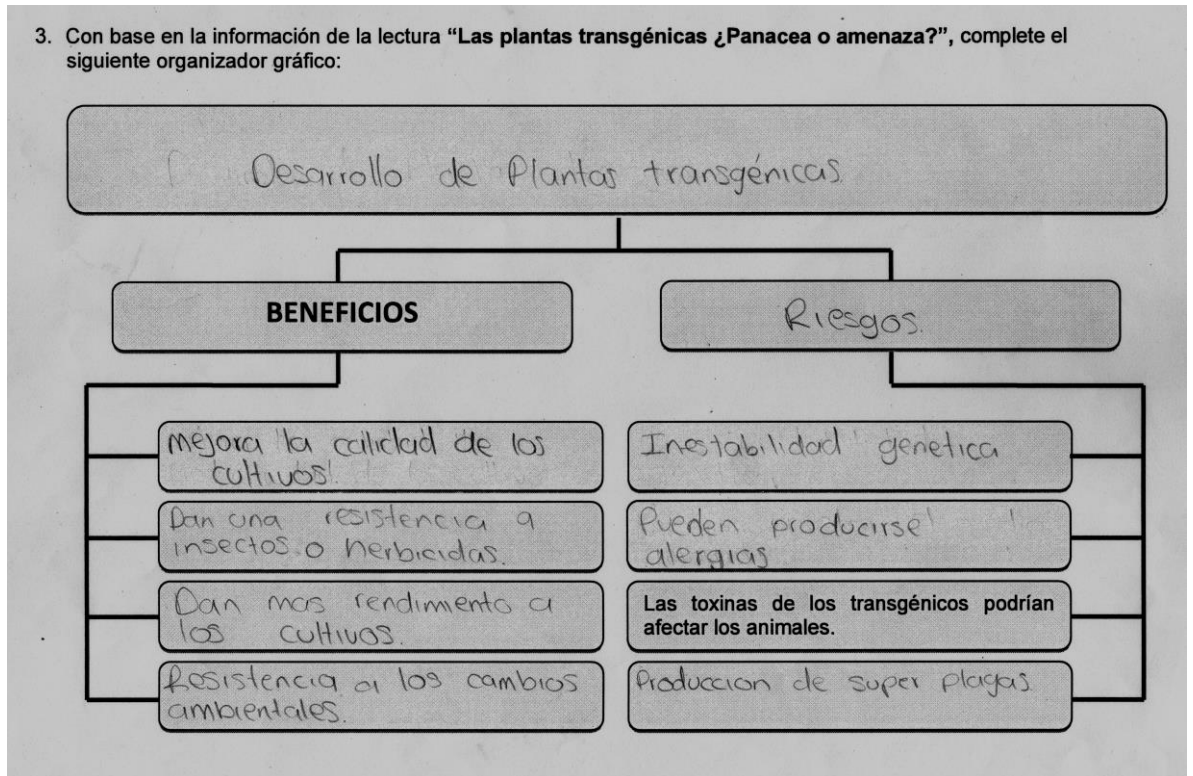 3. Con base en la información de la lectura “Las plantas transgénicas ¿Panacea o amenaza?”, complete el
siguiente organizador gráfico:
Desarrollo de Plantas transgénicas.
BENEFICIOS
Riesgos.
Mejora la calidad de los
cultivos.
Dan una resistencia a
insectos o herbicidas.
Dan mas rendimiento a
los cultivos.
Resistencia a los cambios
ambientales.
Inestabilidad genetica
Pueden producirse
alergias
Las toxinas de los transgénicos podrían
afectar los animales.
Produccion de super plagas